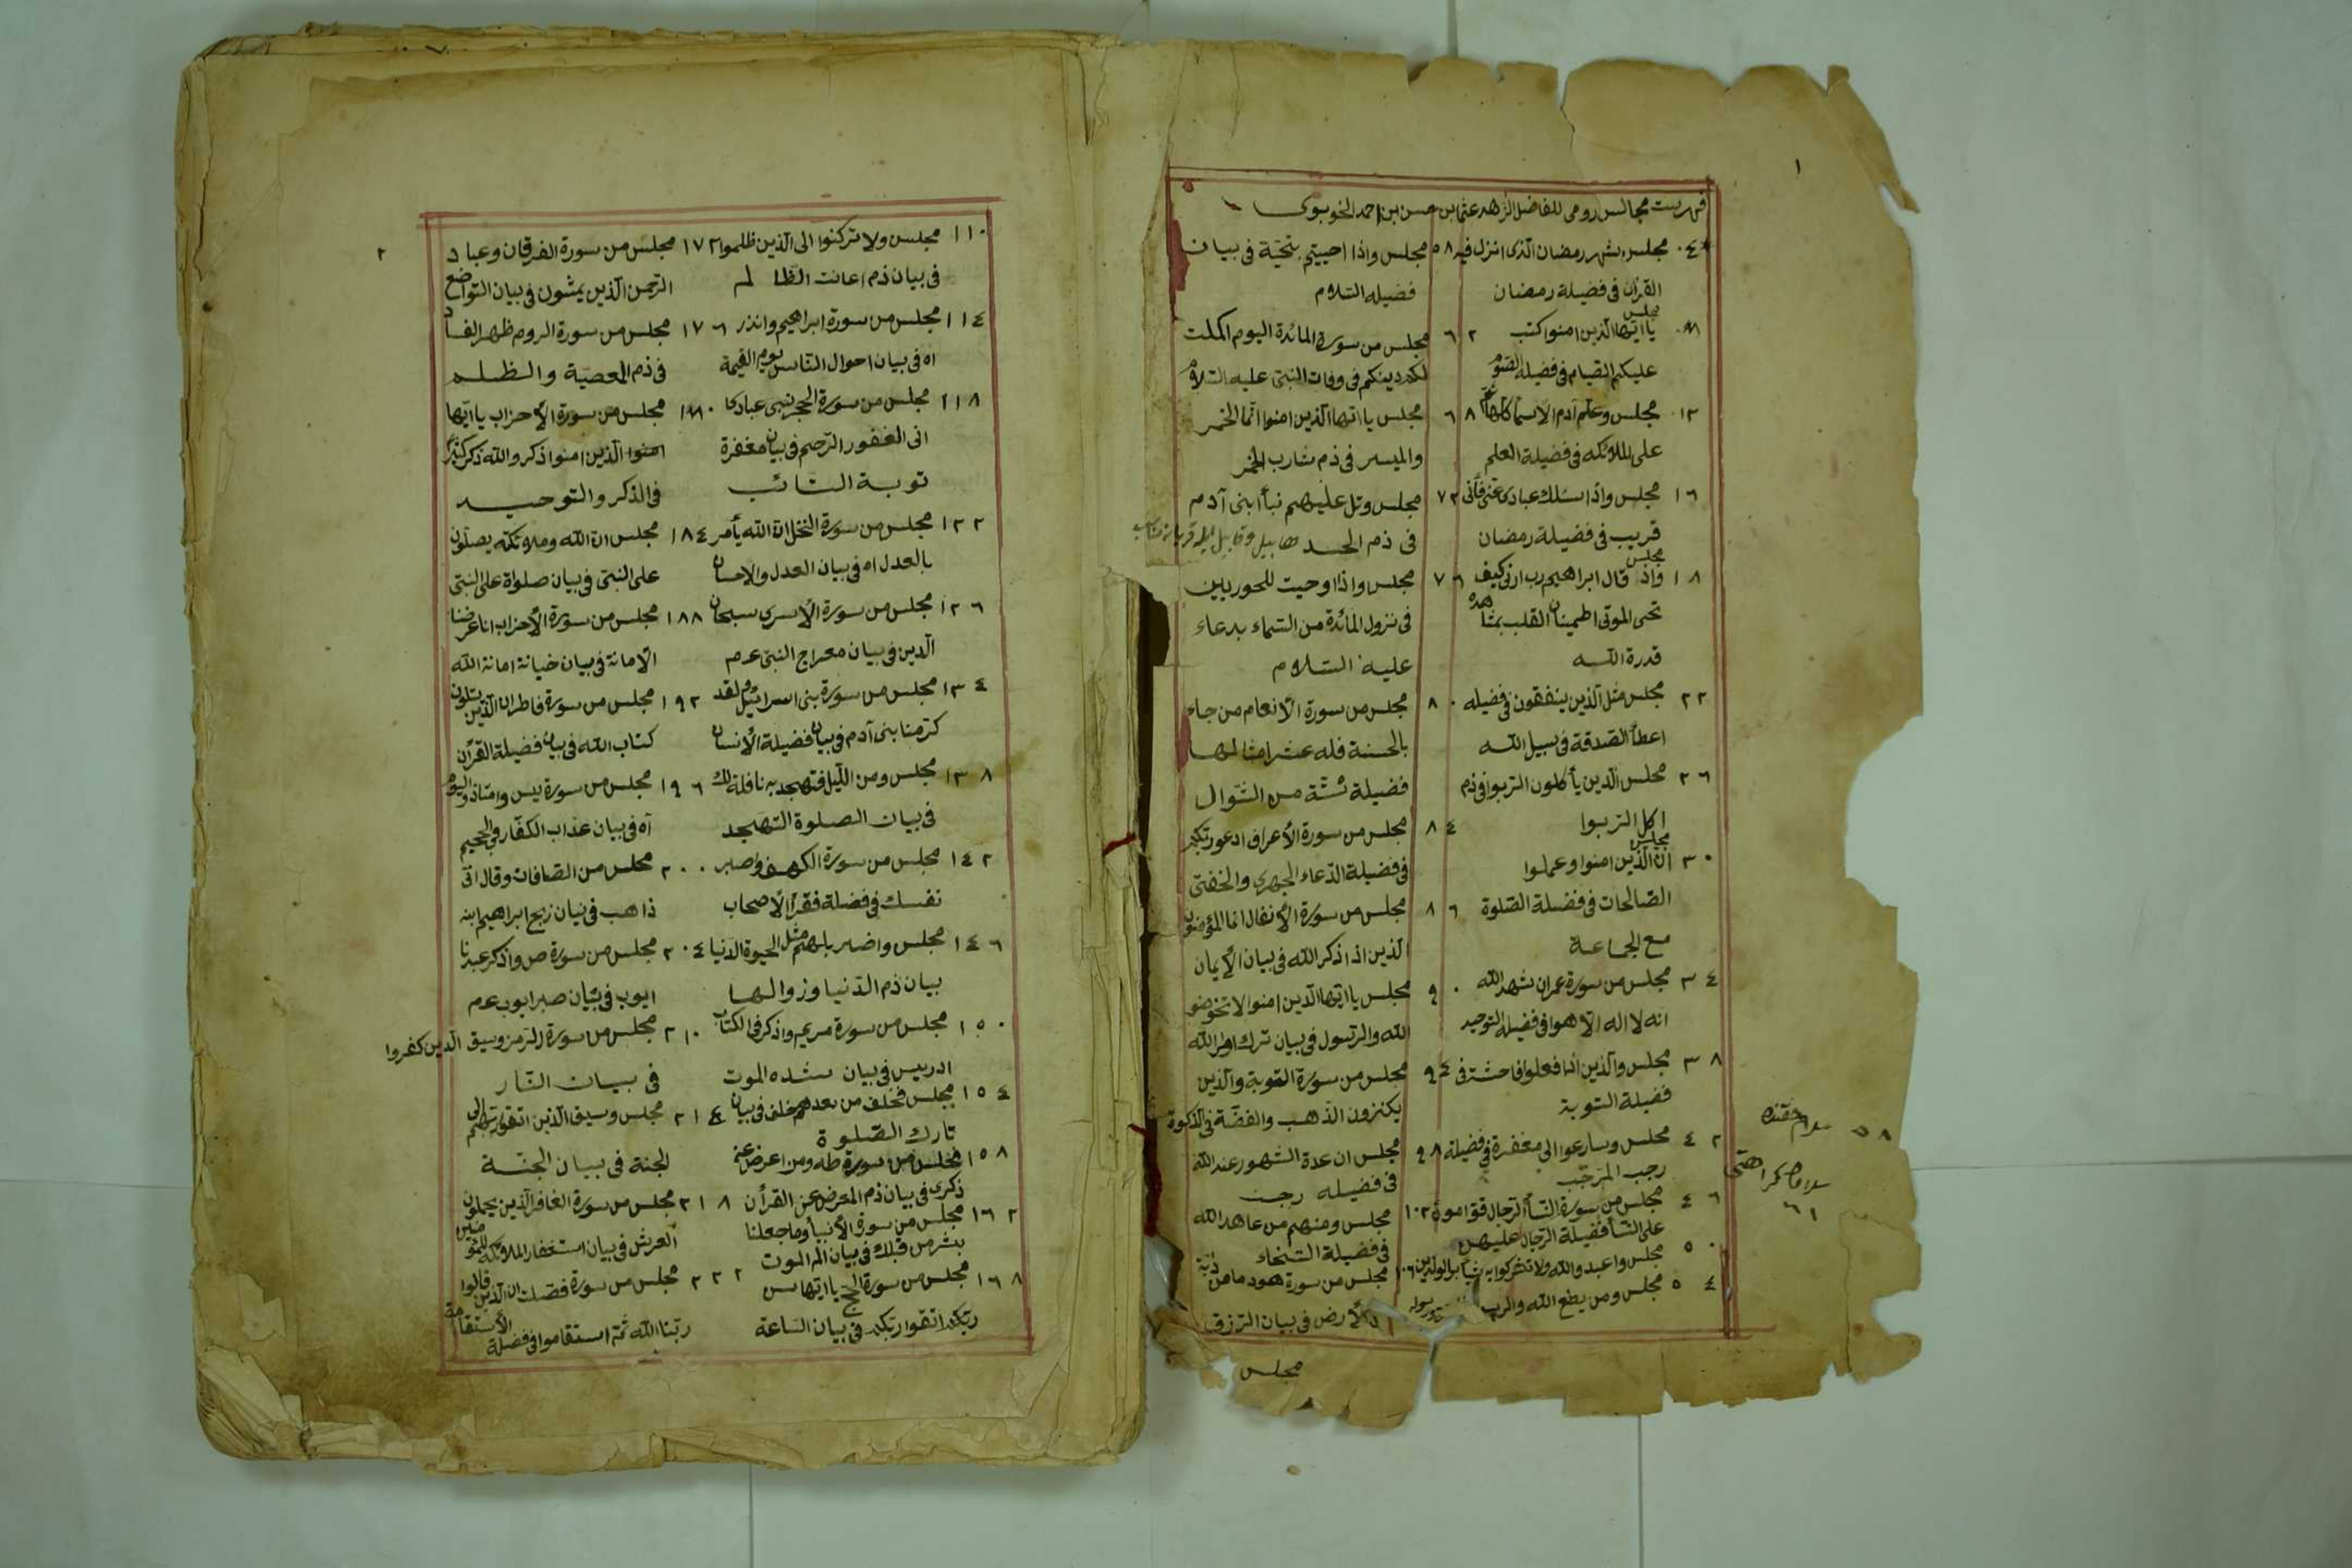 ١
فهريست مجالس رومى للفاضل الزاهد عثمان بن حسن بن احمد الخوبوى
٠٤ مجلس شهر رمضان الذى انزل فيه
القرآن فى فضيلة رمضان
٠٨ مجلس يا ايها الذين امنوا كتب
عليكم الصيام فى فضيلة الصوم
١٢ مجلس وعلم آدم الاسماء كلها
على الملائكه فى فضيلة العلم
١٦ مجلس واذا سئلك عبادى عنى فانى
قريب فى فضيلة رمضان
١٨ مجلس واذ قال ابراهيم رب ارنى كيف
تحى الموتى اطمينان القلب بمشاهده
قدرة الله
٢٢ مجلس مثل الذين ينفقون فى فضيله
اعطأ الصدقة فى سبيل الله
٢٦ مجلس الذين يأكلون الربوا فى ذم
اكل الربوا
٣٠ مجلس ان الذين امنوا وعملوا
الصالحات فى فضيلة الصلوة
مع الجماعة
٣٤ مجلس من سورة عمران شهد الله
انه لا اله الا هو فى فضيلة التوحيد
٣٨ مجلس والذين اذا فعلوا فاحشة فى
فضيلة التوبة
٤٢ مجلس وسارعوا الى مغفرة فى فضيلة
رجب المرجب
٤٦ مجلس من سورة النسأ الرجال قوامون
على النسأ فضيلة الرجال عليهن
٥٠ مجلس واعبدوا الله ولا تشركوا به شيأ بر الوالدين
٥٤ مجلس ومن يطع الله والر
٥٨ مجلس واذا حييتم بتحية فى بيان
فضيله السلام
٦٢ مجلس من سورة المائدة اليوم اكملت
لكم دينكم فى وفات النبى عليه السلام
٦٨ مجلس يا ايها الذين امنوا انما الخمر
والميسر فى ذم شارب الخمر
٧٢ مجلس وتل عليهم نبأ ابنى آدم
فى ذم الحسد هابيل وقابيل
٧٦ مجلس واذا وحيت للحوريين
فى نزول المائدة من السماء بدعاء
عليه السلام
٨٠ مجلس من سورة الانعام من جاء
بالحسنة فله عشر امثالها
فضيلة ستة من الشوال
٨٤ مجلس من سورة الأعراف ادعو ربكم
فى فضيلة الدعاء الجهرى والخفى
٨٦ مجلس من سورة الأنفال انما المؤمنون
الذين اذا ذكر الله فى بيان الأيمان
٩٠ مجلس يا ايها الذين امنوا لا تخونو
الله والرسول فى بيان ترك اوامر الله
٩٤ مجلس من سورة التوبة والذين
يكنزون الذهب والفضة فى الذكوة
٩٨ مجلس ان عدة الشهور عند الله
فى فضيله رجب
١٠٢ مجلس ومنهم من عاهد الله
فى فضيلة السخاء
١٠٦ مجلس من سورة هود ما من دابة
الأرض فى بيان الرزق
مجلس
٥٨
٦١
٢
١١٠ مجلس ولا تركنوا الى الذين ظلموا
فى بيان ذم اعانت الظالم
١١٤ مجلس من سورة ابراهيم وانذر
اه فى بيان احوال الناس يوم القيمة
١١٨ مجلس من سورة الحجر نبى عبادى
انى الغفور الرحيم فى بيان مغفرة
توبة التائب
١٢٢ مجلس من سورة النحل ان الله يأمر
بالعدل اه فى بيان العدل والاحسان
١٢٦ مجلس من سورة الأسرى سبحان
الذين فى بيان معراج النبى عدم
١٣٤ مجلس من سورة بنى اسرائيل ولقد
كرمنا بنى آدم فى بيان فضيلة الأنسان
١٣٨ مجلس ومن الليل فتهجد به نافلة لك
فى بيان الصلوة التهجد
١٤٢ مجلس من سورة الكهف واصبر
نفسك فى فضلة فقرأ الأصحاب
١٤٦ مجلس واضرب لهم مثل الحيوة الدنيا
بيان ذم الدنيا وزوالها
١٥٠ مجلس من سورة مريم واذكر فى الكتاب
ادريس فى بيان شده الموت
١٥٤ مجلس فخلف من بعدهم خلف فى بيان
تارك الصلوة
١٥٨ مجلس من سورة طه ومن اعرض عن
ذكرى فى بيان ذم المعرض عن القرأن
١٦٢ مجلس من سورة الأنبيأ وما جعلنا
بشر من قبلك فى بيان الم الموت
١٦٨ مجلس من سورة الحج يا ايها س
ربكم اتقوا ربكم فى بيان الساعة
١٧٢ مجلس من سورة الفرقان وعباد
الرحمن الذين يمشون فى بيان التواضع
١٧٦ مجلس من سورة الروم ظهر الفساد
فى ذم المعصية والظلم
١٨٠ مجلس من سورة الأحزاب يا ايها
امنوا الذين امنوا ذكروا الله ذكر كثيرا
فى الذكر والتوحيد
١٨٤ مجلس ان الله وملائكته يصلون
على النبى فى بيان صلواة على النبى
١٨٨ مجلس من سورة الأحزاب انا عرضنا
الأمانة فى بيان خيانة امانة الله
١٩٢ مجلس من سورة فاطر ان الذين يتلون
كتاب الله فى بيان فضيلة القرأن
١٩٦ مجلس من سورة يس وامتاذوا اليوم
آه فى بيان عذاب الكفار فى الجحيم
٢٠٠ مجلس من الصافات وقال انى
ذاهب فى بيان زبح ابراهيم ابنه
٢٠٤ مجلس من سورة ص واذكر عبدنا
ايوب فى بيان صبر ايوب عم
٢١٠ مجلس من سورة الزمر وسيق الذين كفروا
فى بيان النار
٢١٤ مجلس وسيق الذين اتقو ربهم الى
الجنة فى بيان الجنة
٢١٨ مجلس من سورة الغافر الذين يحملون
العرش فى بيان استغفار الملائكة للمؤمنين
٢٢٢ مجلس من سورة فصلت ان الذين قالوا
ربنا الله ثم استقاموا فى فضلة الأستقامة